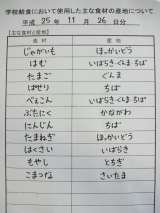 学校給食において使用した主な食材の産地について
平成 25 年 11 月 26 日分
【主な食材と産地】
食材 産地
じゃがいも ほっかいどう
はむ いばらき ぐんま ちば
たまご ぐんま
ぱせり ちば
べえこん いばらき ぐんま ちば
ぶたにく かながわ
にんじん ちば
たまねぎ ほっかいどう
はくさい いばらき
もやし とちぎ
こまつな さいたま